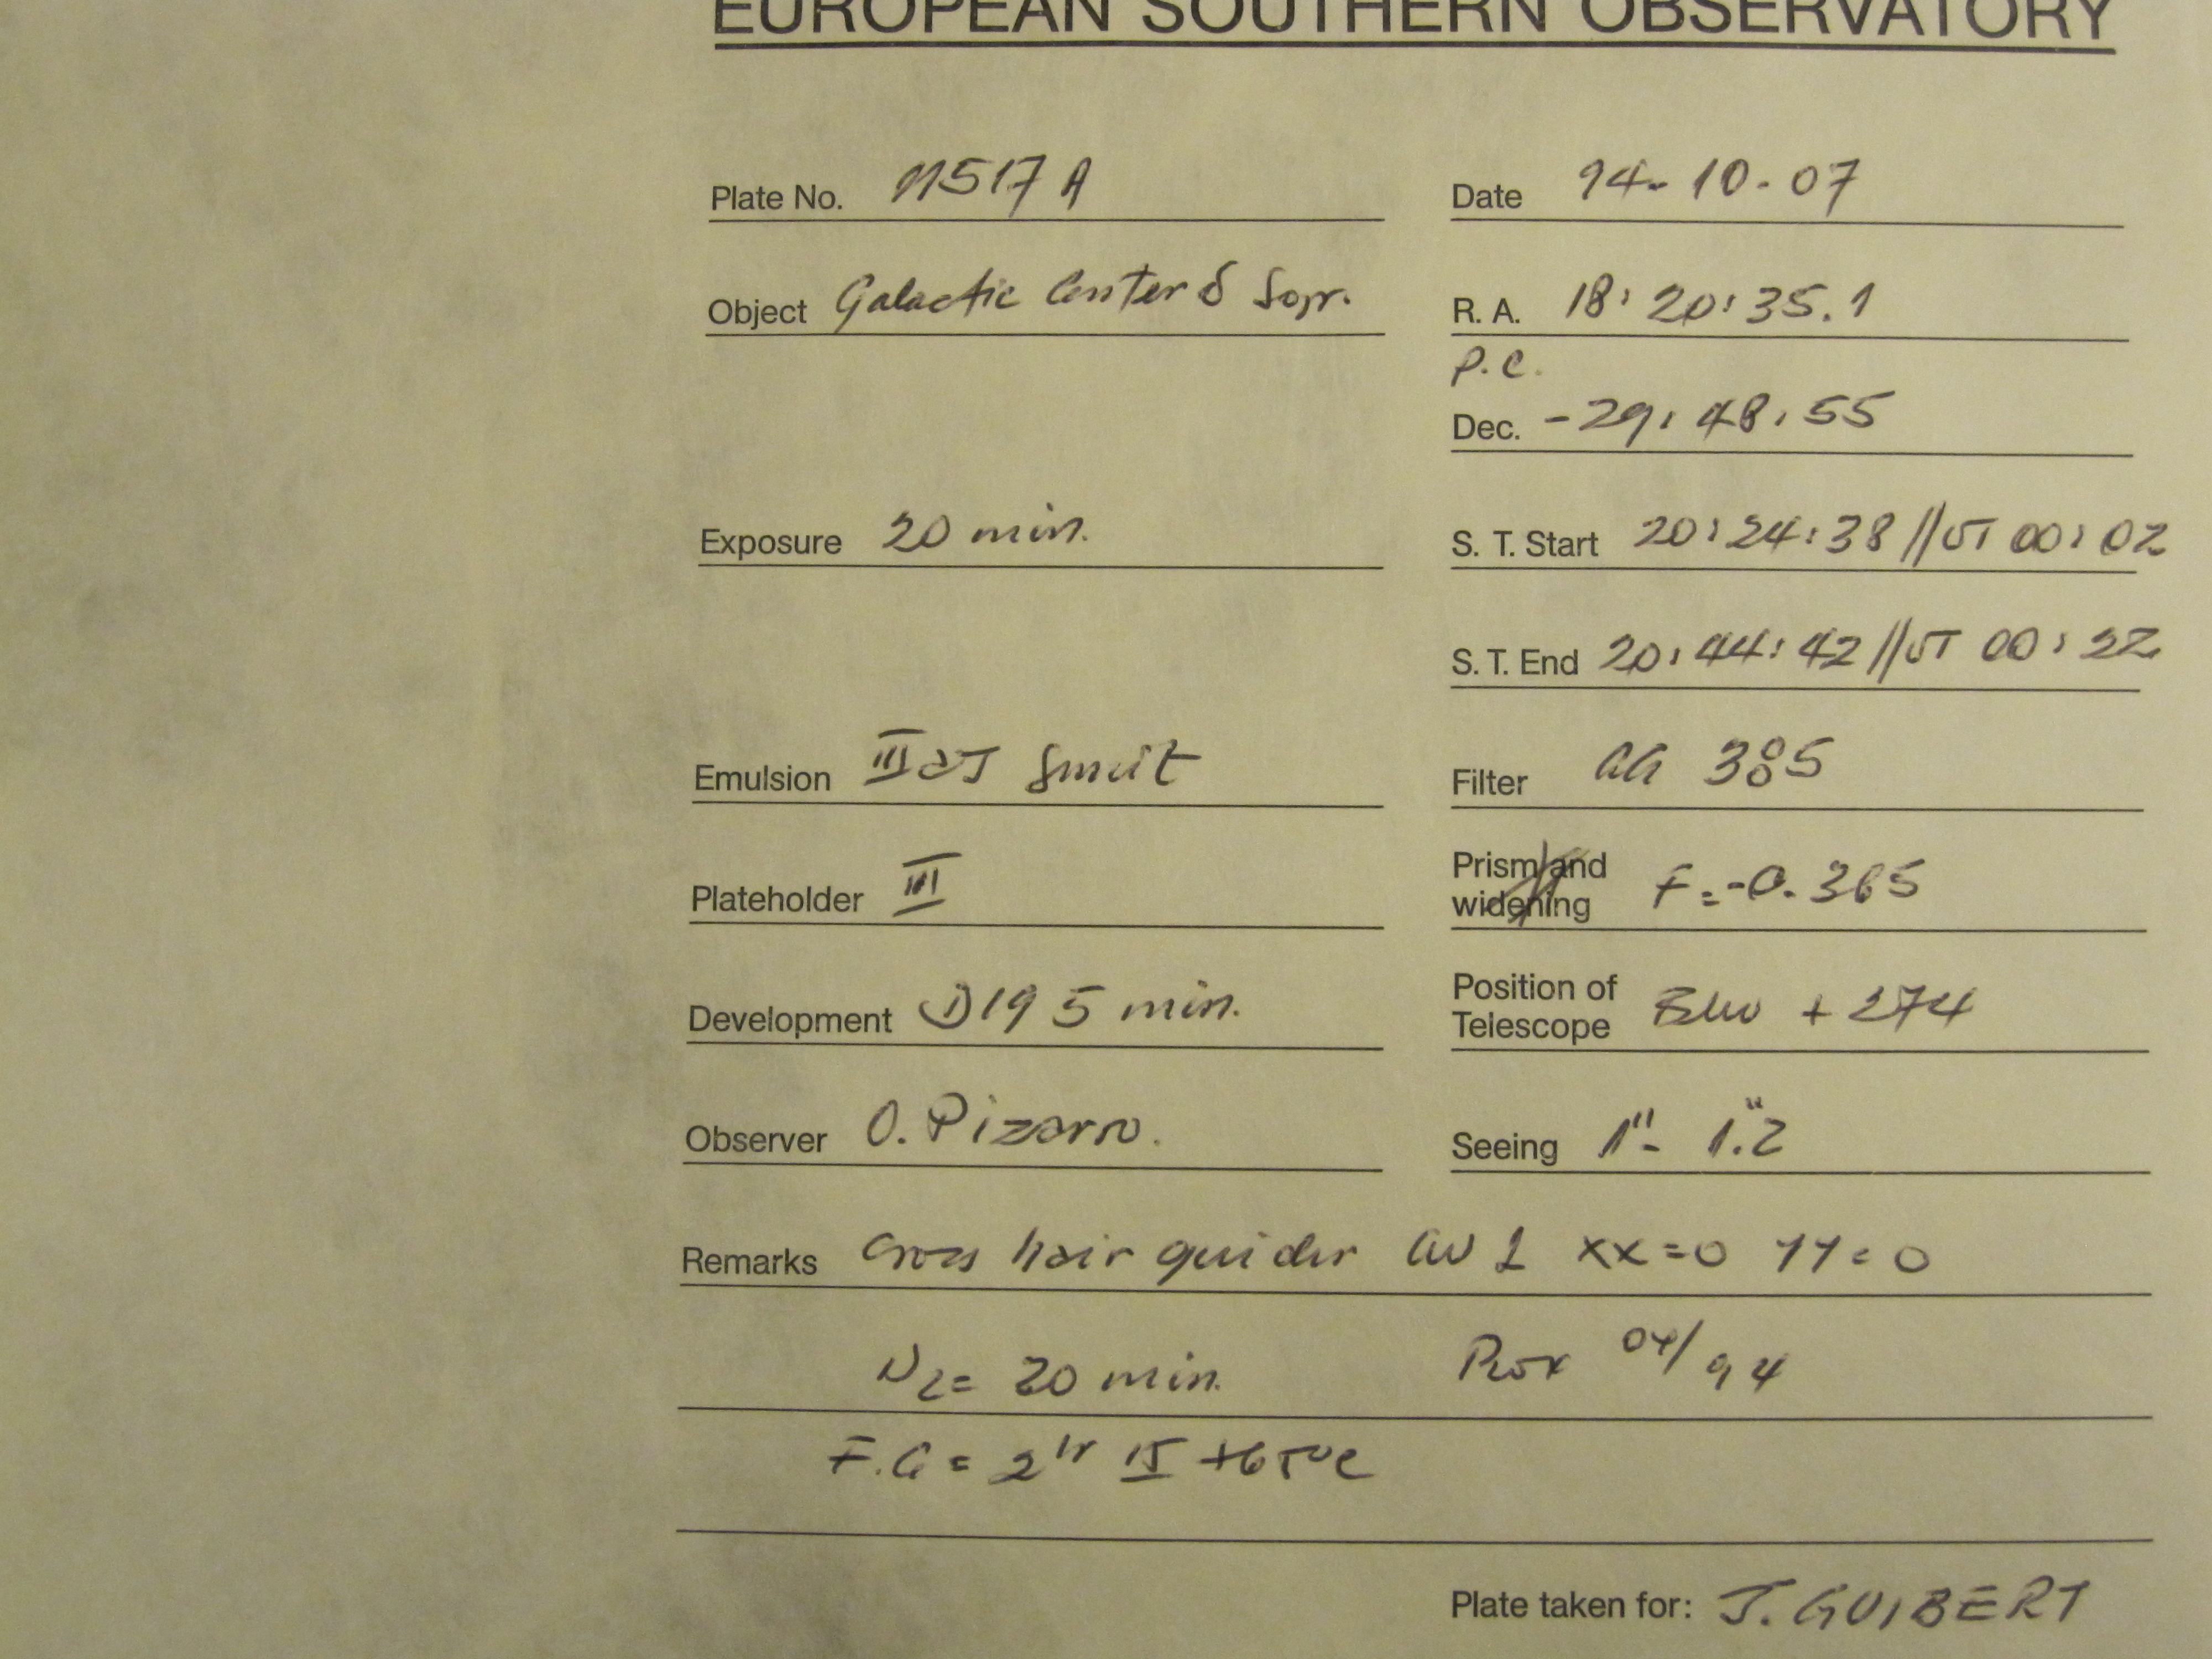 EUROPEAN SOUTHERN OBSERVATORY
Plate No. 11517 A
Date 94-10-07
Object Galactic Center δ Sgr.
R. A. 18:20:35.1
P.C.
Dec. -29:48:55
Exposure 20 min.
S. T. Start 20:24:38 // UT 00:02
S. T. End 20:44:42 // UT 00:22
Emulsion III aJ
Filter GG 385
Plateholder III
Prism and widening F=-0.365
Development D19 5 min.
Position of Telescope + 274
Observer O. Pizarro.
Seeing 1"- 1."2
Remarks Cross hair guider xx=0 yy=0
N2= 20 min. 04/94
F.G = 2hr +65°C
Plate taken for: J. GUIBERT